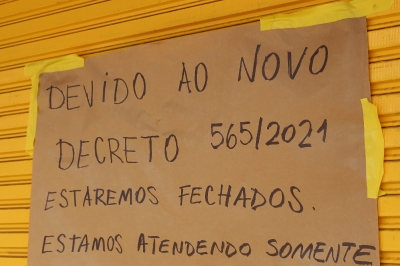 DEVIDO AO NOVO
DECRETO 565/2021
ESTAREMOS FECHADOS.
ESTAMOS ATENDENDO SOMENTE